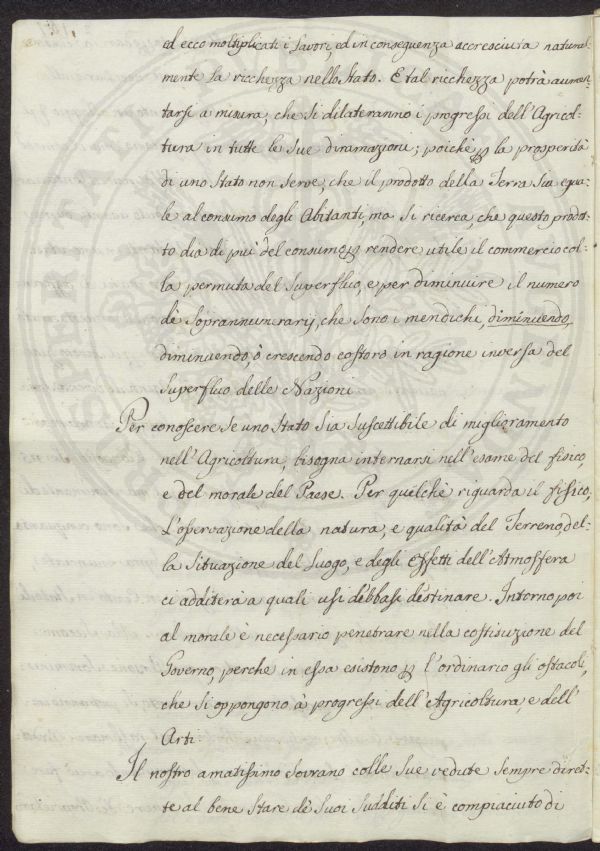 ed ecco moltiplicati i lavori, ed in conseguenza accresciuta natural-
mente la ricchezza nello Stato. E tal ricchezza potrà aumen-
tarsi a misura, che si dilateranno i progressi dell'Agricol-
tura in tutte le sue diramazioni; poiche p la prosperità
di uno Stato non serve, che il prodotto della Terra sia egua-
le al consumo degli Abitanti, ma si ricerca, che questo prodot-
to dia di più del consumo p rendere utile il commercio col-
la permuta del superfluo, e per diminuire il numero
de' soprannumerarj, che sono i mendichi, diminuendo,
diminuendo, ò crescendo costoro in ragione inversa del
superfluo delle Nazioni
Per conoscere se uno Stato sia suscettibile di miglioramento
nell'Agricoltura, bisogna internarsi nell'esame del fisico,
e del morale del Paese. Per quelche riguarda il fisico,
L'osservazione della natura, e qualità del Terreno, del-
la situazione del Luogo, e degli effetti dell'Atmosfera
ci additerà a quali usi debbasi destinare. Intorno poi
al morale è necessario penetrare nella costituzione del
Governo, perche in essa esistono p l'ordinario gli ostacoli,
che si oppongono à progressi dell'Agricoltura, e dell'
Arti.
Il nostro amatissimo Sovrano colle sue vedute sempre diret-
te al bene stare de' suoi sudditi si è compiaciuto di